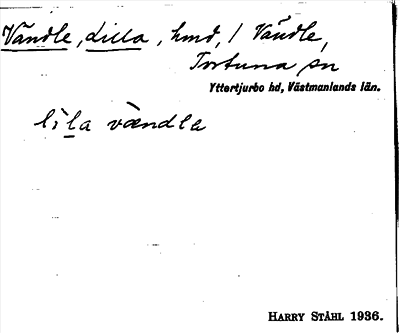 Vändle, Lilla, hmd, / Vändle,
Tortuna sn
Yttertjurbo hd, Västmanlands län.
lìla vændla
HARRY STÅHL 1936.